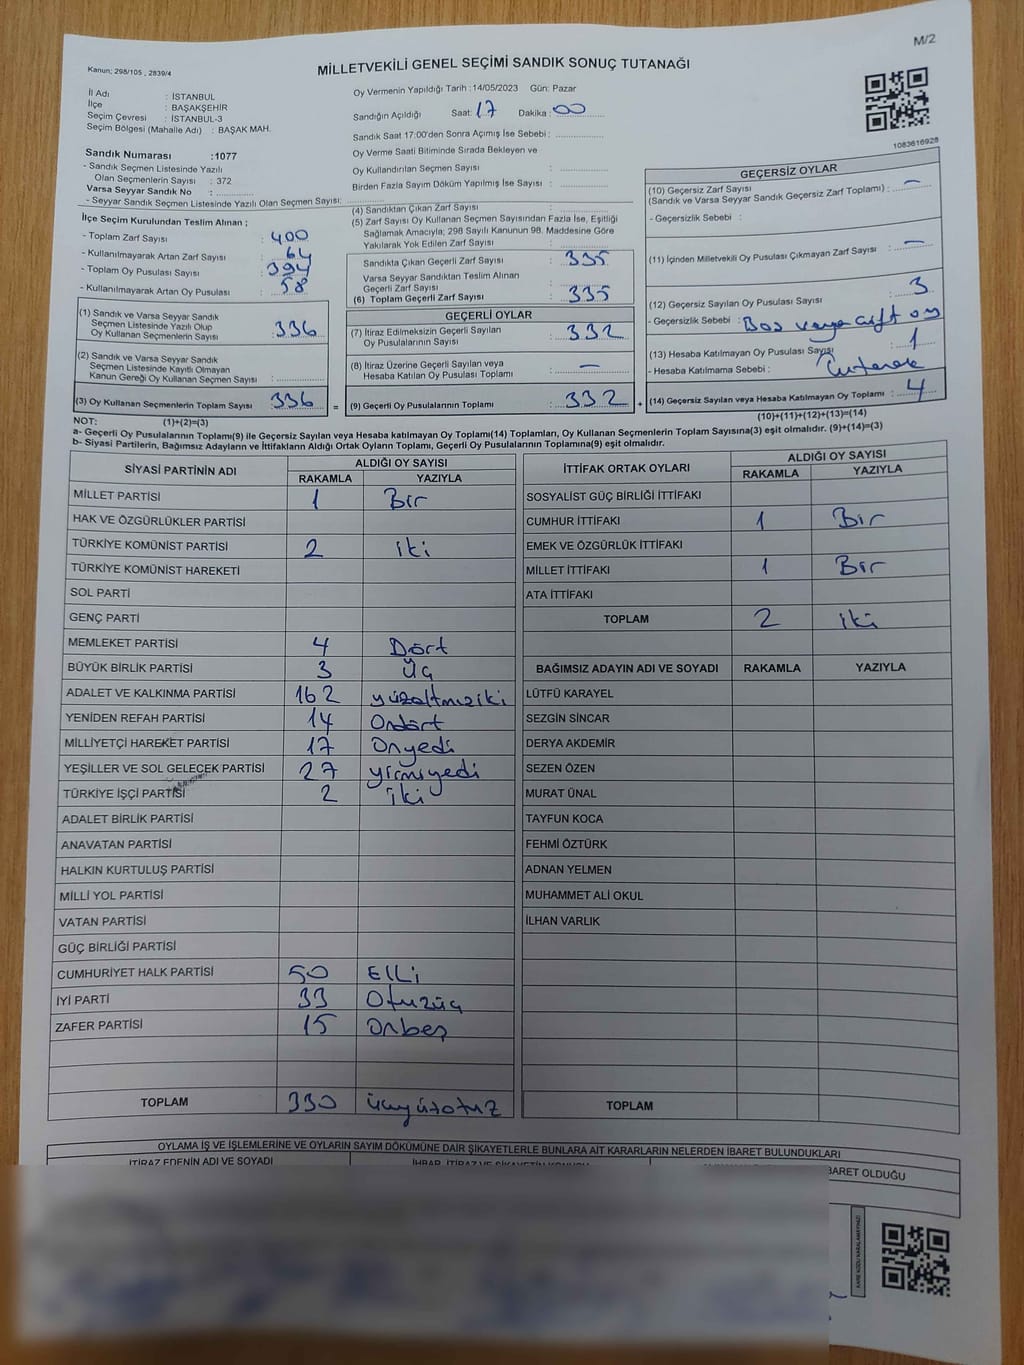 M/2
Kanun; 298/105 , 2839/4
MİLLETVEKİLİ GENEL SEÇİMİ SANDIK SONUÇ TUTANAĞI
İl Adı : İSTANBUL
İlçe : BAŞAKŞEHİR
Seçim Çevresi : İSTANBUL-3
Seçim Bölgesi (Mahalle Adı) : BAŞAK MAH.
Sandık Numarası :1077
- Sandık Seçmen Listesinde Yazılı
Olan Seçmenlerin Sayısı : 372
Varsa Seyyar Sandık No :
- Seyyar Sandık Seçmen Listesinde Yazılı Olan Seçmen Sayısı:
Oy Vermenin Yapıldığı Tarih :14/05/2023 Gün: Pazar
Sandığın Açıldığı Saat: 17 Dakika : 00
Sandık Saat 17:00'den Sonra Açımış İse Sebebi :
Oy Verme Saati Bitiminde Sırada Bekleyen ve
Oy Kullandırılan Seçmen Sayısı :
Birden Fazla Sayım Döküm Yapılmış İse Sayısı :
1083616928
İlçe Seçim Kurulundan Teslim Alınan ;
- Toplam Zarf Sayısı : 400
- Kullanılmayarak Artan Zarf Sayısı : 64
- Toplam Oy Pusulası Sayısı : 394
- Kullanılmayarak Artan Oy Pusulası : 58
(1) Sandık ve Varsa Seyyar Sandık
Seçmen Listesinde Yazılı Olup
Oy Kullanan Seçmenlerin Sayısı : 336
(2) Sandık ve Varsa Seyyar Sandık
Seçmen Listesinde Kayıtlı Olmayan
Kanun Gereği Oy Kullanan Seçmen Sayısı :
(3) Oy Kullanan Seçmenlerin Toplam Sayısı : 336 =
(4) Sandıktan Çıkan Zarf Sayısı :
(5) Zarf Sayısı Oy Kullanan Seçmen Sayısından Fazla İse, Eşitliği
Sağlamak Amacıyla; 298 Sayılı Kanunun 98. Maddesine Göre
Yakılarak Yok Edilen Zarf Sayısı :
Sandıkta Çıkan Geçerli Zarf Sayısı : 335
Varsa Seyyar Sandıktan Teslim Alınan
Geçerli Zarf Sayısı :
(6) Toplam Geçerli Zarf Sayısı : 335
GEÇERLİ OYLAR
(7) İtiraz Edilmeksizin Geçerli Sayılan
Oy Pusulalarının Sayısı : 332
(8) İtiraz Üzerine Geçerli Sayılan veya
Hesaba Katılan Oy Pusulası Toplamı : —
(9) Geçerli Oy Pusulalarının Toplamı : 332 +
GEÇERSİZ OYLAR
(10) Geçersiz Zarf Sayısı
(Sandık ve Varsa Seyyar Sandık Geçersiz Zarf Toplamı) : —
- Geçersizlik Sebebi :
(11) İçinden Milletvekili Oy Pusulası Çıkmayan Zarf Sayısı : —
(12) Geçersiz Sayılan Oy Pusulası Sayısı : 3
- Geçersizlik Sebebi : Boş veya çift oy
(13) Hesaba Katılmayan Oy Pusulası Sayısı : 1
- Hesaba Katılmama Sebebi :
(14) Geçersiz Sayılan veya Hesaba Katılmayan Oy Toplamı : 4
NOT: (1)+(2)=(3) (10)+(11)+(12)+(13)=(14)
a- Geçerli Oy Pusulalarının Toplamı(9) ile Geçersiz Sayılan veya Hesaba katılmayan Oy Toplamı(14) Toplamları, Oy Kullanan Seçmenlerin Toplam Sayısına(3) eşit olmalıdır. (9)+(14)=(3)
b- Siyasi Partilerin, Bağımsız Adayların ve İttifakların Aldığı Ortak Oyların Toplamı, Geçerli Oy Pusulalarının Toplamına(9) eşit olmalıdır.
SİYASİ PARTİNİN ADI ALDIĞI OY SAYISI
RAKAMLA YAZIYLA
MİLLET PARTİSİ 1 Bir
HAK VE ÖZGÜRLÜKLER PARTİSİ
TÜRKİYE KOMÜNİST PARTİSİ 2 iki
TÜRKİYE KOMÜNİST HAREKETİ
SOL PARTİ
GENÇ PARTİ
MEMLEKET PARTİSİ 4 Dört
BÜYÜK BİRLİK PARTİSİ 3 Üç
ADALET VE KALKINMA PARTİSİ 162 yüzaltmışiki
YENİDEN REFAH PARTİSİ 14 Ondört
MİLLİYETÇİ HAREKET PARTİSİ 17 Onyedi
YEŞİLLER VE SOL GELECEK PARTİSİ 27 yirmiyedi
TÜRKİYE İŞÇİ PARTİSİ 2 İki
ADALET BİRLİK PARTİSİ
ANAVATAN PARTİSİ
HALKIN KURTULUŞ PARTİSİ
MİLLİ YOL PARTİSİ
VATAN PARTİSİ
GÜÇ BİRLİĞİ PARTİSİ
CUMHURİYET HALK PARTİSİ 50 Elli
İYİ PARTİ 33 Otuzüç
ZAFER PARTİSİ 15 Onbeş
TOPLAM 330 üçyüzotuz
İTTİFAK ORTAK OYLARI ALDIĞI OY SAYISI
RAKAMLA YAZIYLA
SOSYALİST GÜÇ BİRLİĞİ İTTİFAKI
CUMHUR İTTİFAKI 1 Bir
EMEK VE ÖZGÜRLÜK İTTİFAKI
MİLLET İTTİFAKI 1 Bir
ATA İTTİFAKI
TOPLAM 2 iki
BAĞIMSIZ ADAYIN ADI VE SOYADI RAKAMLA YAZIYLA
LÜTFÜ KARAYEL
SEZGİN SİNCAR
DERYA AKDEMİR
SEZEN ÖZEN
MURAT ÜNAL
TAYFUN KOCA
FEHMİ ÖZTÜRK
ADNAN YELMEN
MUHAMMET ALİ OKUL
İLHAN VARLIK
TOPLAM
OYLAMA İŞ VE İŞLEMLERİNE VE OYLARIN SAYIM DÖKÜMÜNE DAİR ŞİKAYETLERLE BUNLARA AİT KARARLARIN NELERDEN İBARET BULUNDUKLARI
İTİRAZ EDENİN ADI VE SOYADI
BARET OLDUĞU